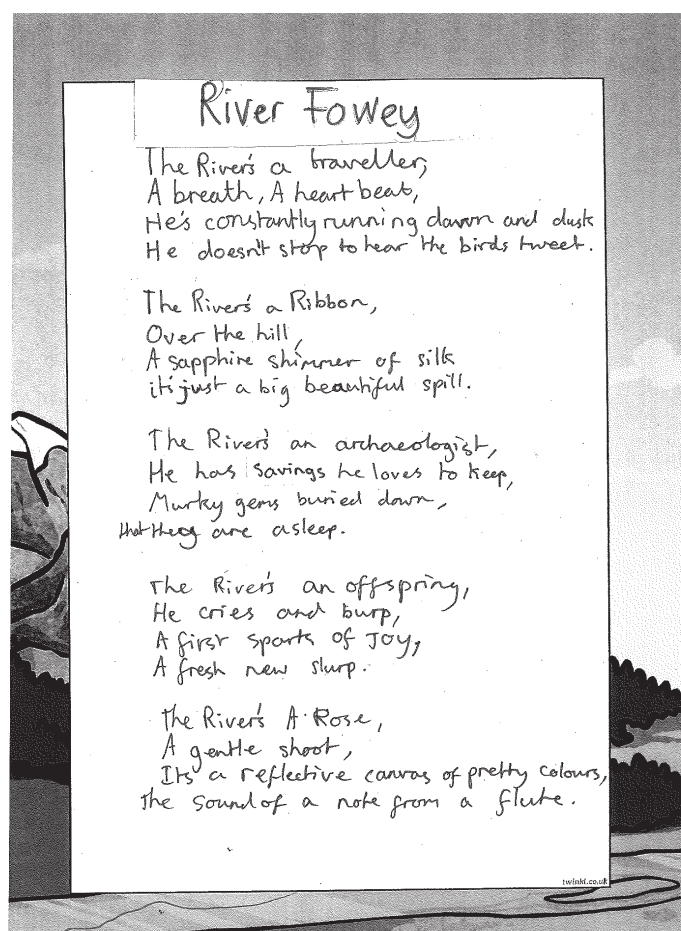 River Fowey
The River's a traveller,
A breath, A heart beat,
He's constantly running dawn and dusk
He doesn't stop to hear the birds tweet.
The River's a Ribbon,
Over the hill,
A sapphire shimmer of silk
it's just a big beautiful spill.
The River's an archaeologist,
He has savings he loves to keep,
Murky gems buried down,
that they are asleep.
The River's an offspring,
He cries and burp,
A first spark of Joy,
A fresh new slurp.
The River's A Rose,
A gentle shoot,
Its a reflective canvas of pretty colours,
The sound of a note from a flute.
twinkl.co.uk